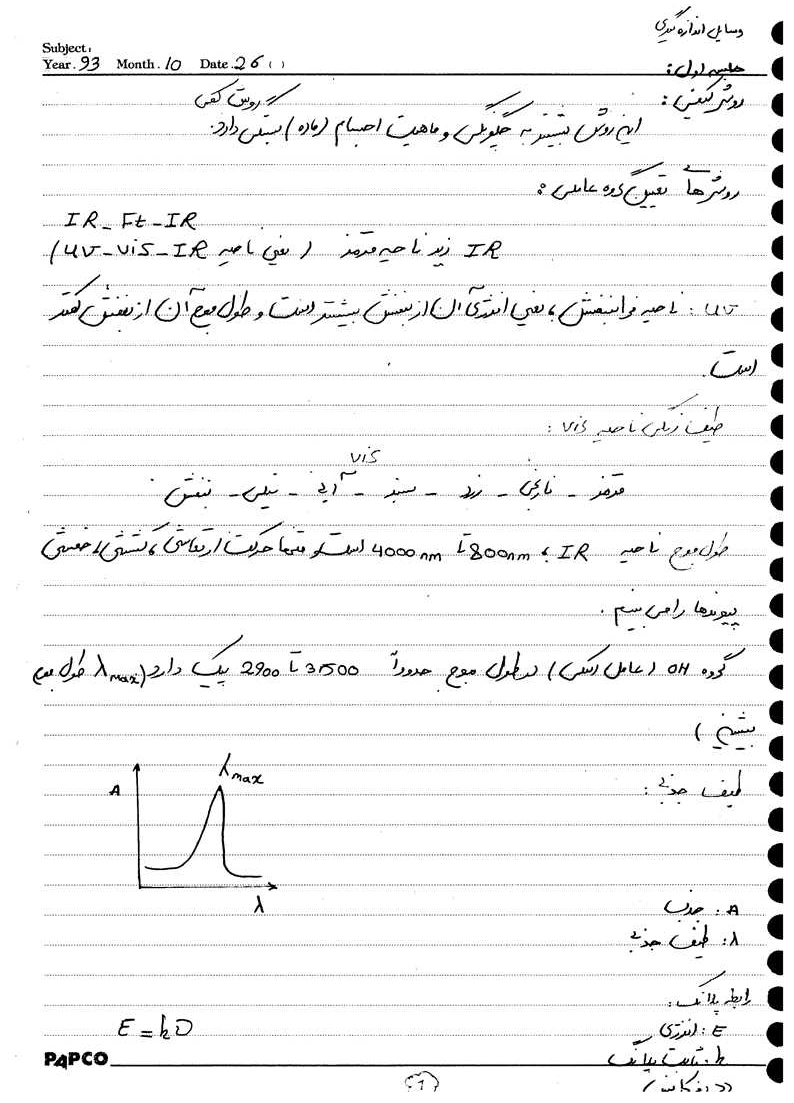 وسایل اندازه گیری
Subject:
Year. 93 Month. 10 Date. 26 ( )
جلسه اول:
روش کیفی: روش کمی
این روش بیشتر به چگونگی و ماهیت اجسام (ماده) بستگی دارد.
روش های تعیین گروه عاملی:
IR - Ft - IR
IR زیر ناحیه قرمز (یعنی ناحیه UV-Vis-IR)
UV: ناحیه فرابنفش، یعنی انرژی آن از بنفش بیشتر است و طول موج آن از بنفش کمتر
است.
طیف رنگی ناحیه Vis:
Vis
قرمز - نارنجی - زرد - سبز - آبی - نیلی - بنفش
طول موج ناحیه IR، 800nm تا 4000nm است و حرکت ارتعاشی، کششی، خمشی
پیوندها را می بینیم.
گروه OH (عامل الکلی) در طول موج حدوداً 3500 تا 2900 پیک دارد (λmax طول موج
بیشینه)
طیف جذبی:
λmax
A
λ
A: جذب
λ: طیف جذبی
رابطه پلانک:
E = hυ
E: انرژی
h: ثابت پلانک
PAPCO
1